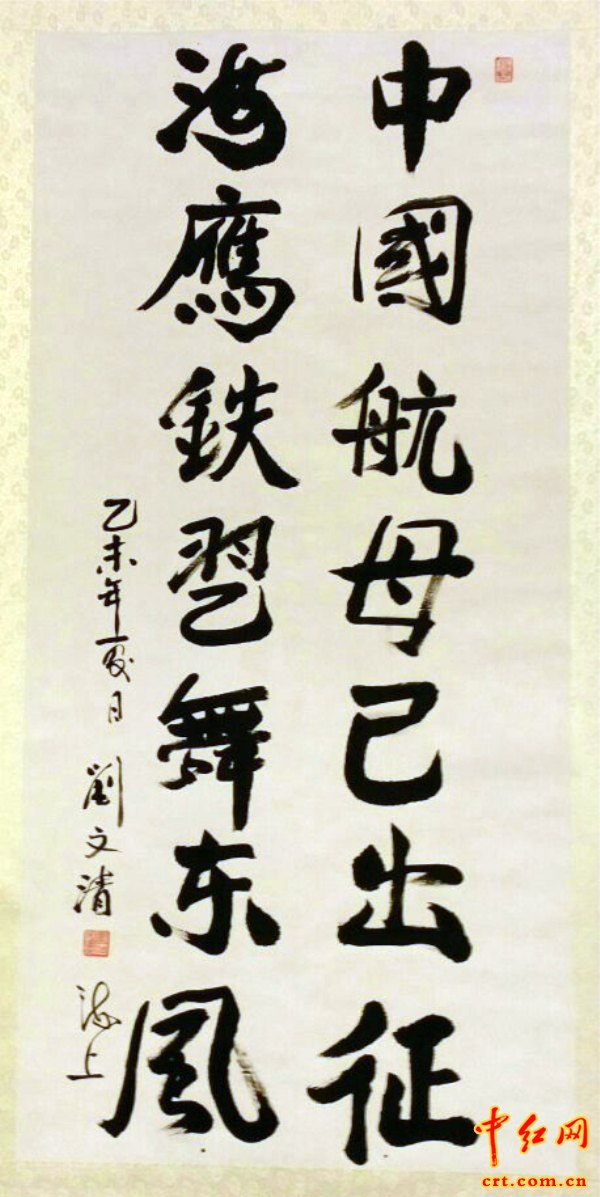 中國航母已出征
海鷹鉄翅舞东風
乙未年夏日
劉文清
海上
中红网
crt.com.cn